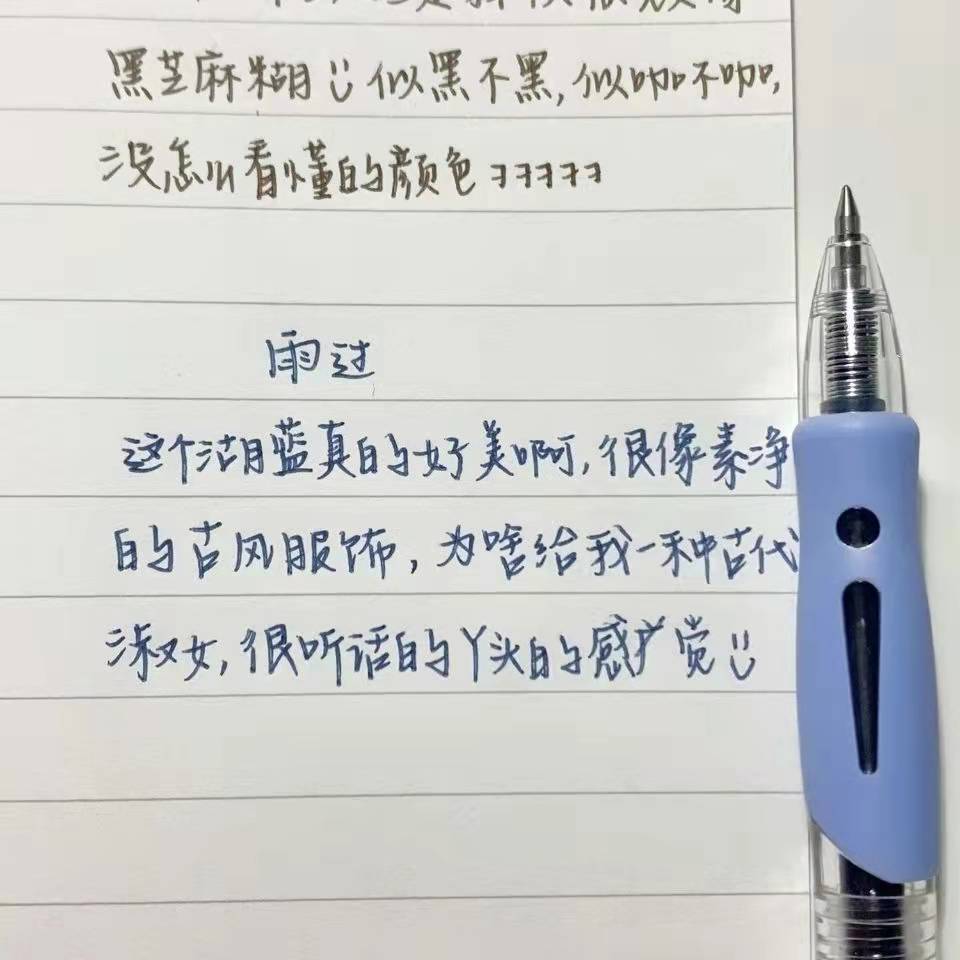 黑芝麻糊ü似黑不黑,似咖不咖,
没怎么看懂的颜色ヨヨヨヨヨ
雨过
这个湖蓝真的好美啊,很像素净
的古风服饰,为啥给我一种古代
淑女,很听话的丫头的感觉ü